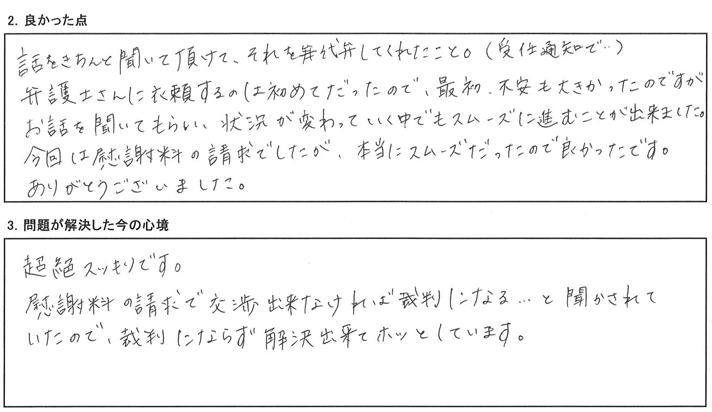 2. 良かった点
話をきちんと聞いて頂けて、それを全代弁してくれたこと。(受任通知で‥)
弁護士さんに依頼するのは初めてだったので、最初、不安も大きかったのですが
お話を聞いてもらい、状況が変わっていく中でもスムーズに進むことが出来ました。
今回は慰謝料の請求でしたが、本当にスムーズだったので良かったです。
ありがとうございました。
3. 問題が解決した今の心境
超絶スッキリです。
慰謝料の請求で交渉出来なければ裁判になる…と聞かされて
いたので、裁判にならず解決出来てホッとしています。